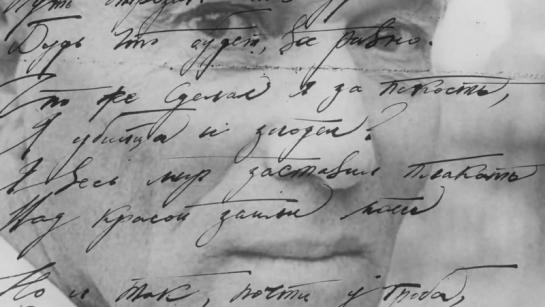 Путь отрезан
Будь что будет, все равно.
Что же сделал я за пакость,
Я убийца и злодей?
Я весь мир заставил плакать
Над красой земли моей
Но и так, почти у гроба